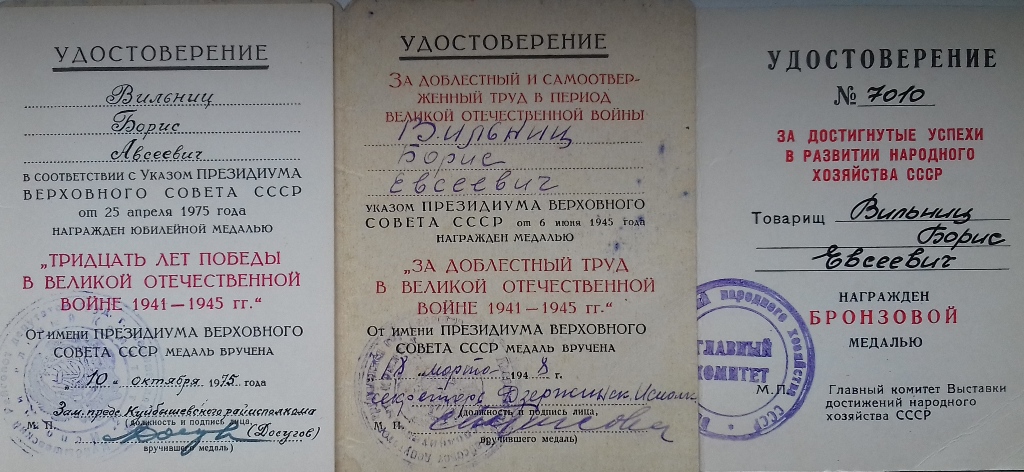 УДОСТОВЕРЕНИЕ
Вильниц
Борис
Авсеевич
В СООТВЕТСТВИИ С УКАЗОМ ПРЕЗИДИУМА
ВЕРХОВНОГО СОВЕТА СССР
от 25 апреля 1975 года
НАГРАЖДЕН ЮБИЛЕЙНОЙ МЕДАЛЬЮ
„ТРИДЦАТЬ ЛЕТ ПОБЕДЫ
В ВЕЛИКОЙ ОТЕЧЕСТВЕННОЙ
ВОЙНЕ 1941—1945 гг.“
От имени ПРЕЗИДИУМА ВЕРХОВНОГО
СОВЕТА СССР МЕДАЛЬ ВРУЧЕНА
„10“ октября 1975 года
Зам. пред. Куйбышевского райисполкома
(должность и подпись лица,
М. П. (Досугов)
вручившего медаль)
УДОСТОВЕРЕНИЕ
ЗА ДОБЛЕСТНЫЙ И САМООТВЕР-
ЖЕННЫЙ ТРУД В ПЕРИОД
ВЕЛИКОЙ ОТЕЧЕСТВЕННОЙ ВОЙНЫ
Вильниц
Борис
Евсеевич
УКАЗОМ ПРЕЗИДИУМА ВЕРХОВНОГО
СОВЕТА СССР от 6 июня 1945 года
НАГРАЖДЕН МЕДАЛЬЮ
„ЗА ДОБЛЕСТНЫЙ ТРУД
В ВЕЛИКОЙ ОТЕЧЕСТВЕННОЙ
ВОЙНЕ 1941—1945 гг.“
От имени ПРЕЗИДИУМА ВЕРХОВНОГО
СОВЕТА СССР МЕДАЛЬ ВРУЧЕНА
8 марта 1948 г.
секретарь Дзержинск.
(должность и подпись лица,
М. П.
вручившего медаль)
УДОСТОВЕРЕНИЕ
№ 7010
ЗА ДОСТИГНУТЫЕ УСПЕХИ
В РАЗВИТИИ НАРОДНОГО
ХОЗЯЙСТВА СССР
Товарищ Вильниц
Борис
Евсеевич
НАГРАЖДЕН
БРОНЗОВОЙ
МЕДАЛЬЮ
народного хозяйства СССР
ГЛАВНЫЙ
КОМИТЕТ
М.П. Главный комитет Выставки
достижений народного
хозяйства СССР